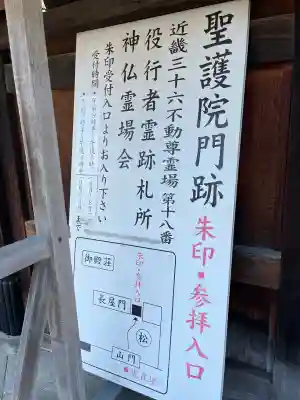 聖護院門跡
朱印・参拝入口
近畿三十六不動尊霊場 第十八番
役行者霊跡札所
神仏霊場会
朱印受付入口よりお入り下さい
受付時間
まで
朱印・参拝入口
御殿荘
長屋門
松
山門